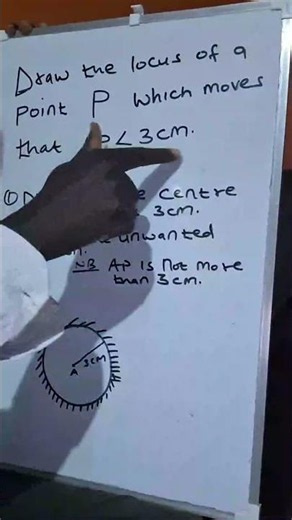 Draw the locus of a
Point P which moves
that P < 3cm.
① centre
3cm.
unwanted
NB AP is not more
than 3cm.
A 3cm